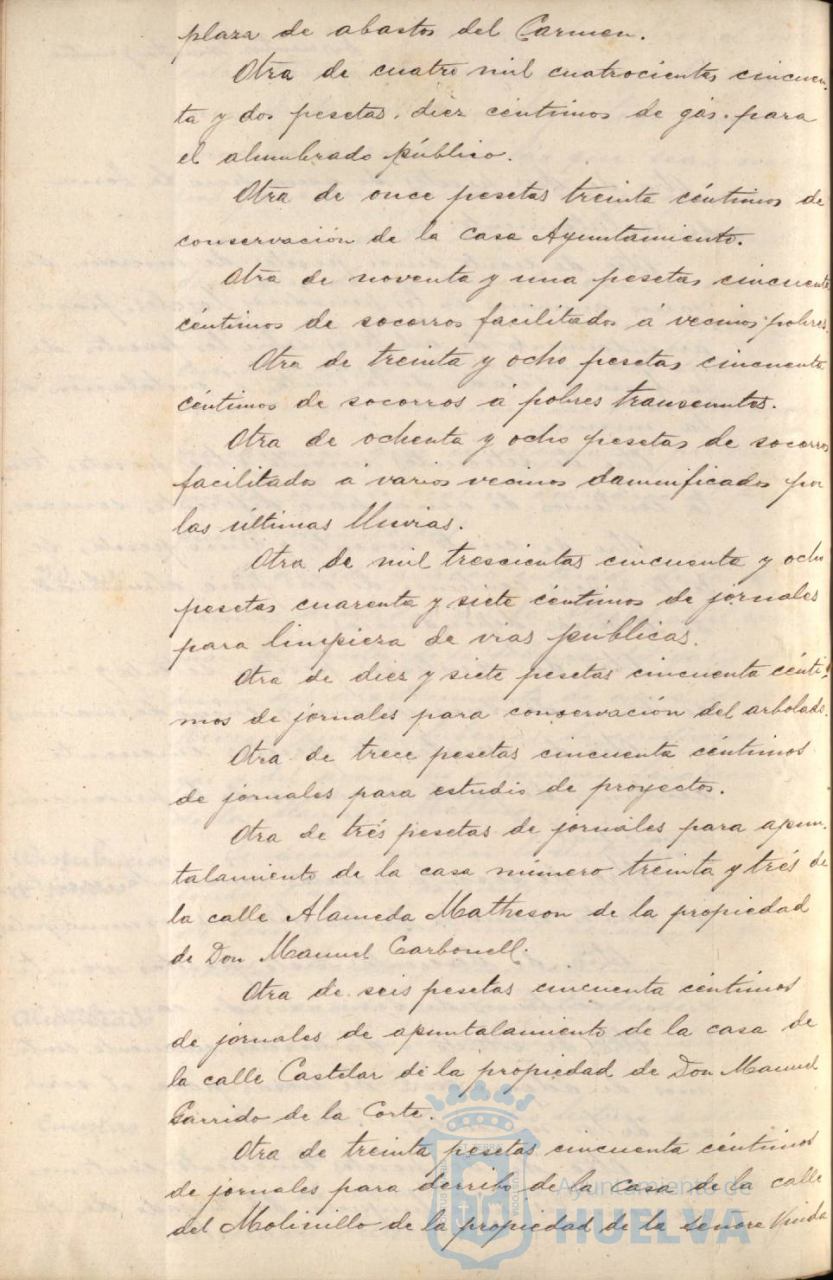 plaza de abastos del Carmen.
Otra de cuatro mil cuatrocientas cincuen-
ta y dos pesetas, diez céntimos de gás para
el alumbrado público.
Otra de once pesetas treinta céntimos de
conservación de la Casa Ayuntamiento.
Otra de noventa y una pesetas cincuenta
céntimos de socorros facilitados á vecinos pobres.
Otra de treinta y ocho pesetas cincuenta
céntimos de socorros á pobres transeuntes.
Otra de ochenta y ocho pesetas de socorros
facilitados á varios vecinos damnificados por
las últimas lluvias.
Otra de mil trescientas cincuenta y ocho
pesetas cuarenta y siete céntimos de jornales
para limpieza de vias públicas.
Otra de diez y siete pesetas cincuenta cénti-
mos de jornales para conservación del arbolado.
Otra de trece pesetas cincuenta céntimos
de jornales para estudio de proyectos.
Otra de trés pesetas de jornales para apun-
talamiento de la casa número treinta y trés de
la calle Alameda Matheson de la propiedad
de Don Manuel Carbonell.
Otra de seis pesetas cincuenta céntimos
de jornales de apuntalamiento de la casa de
la calle Castelar de la propiedad de Don Manuel
Garrido de la Corte.
Otra de treinta pesetas cincuenta céntimos
de jornales para derribo de la casa de la calle
del Molinillo de la propiedad de la señora Viuda
Ayuntamiento de
HUELVA